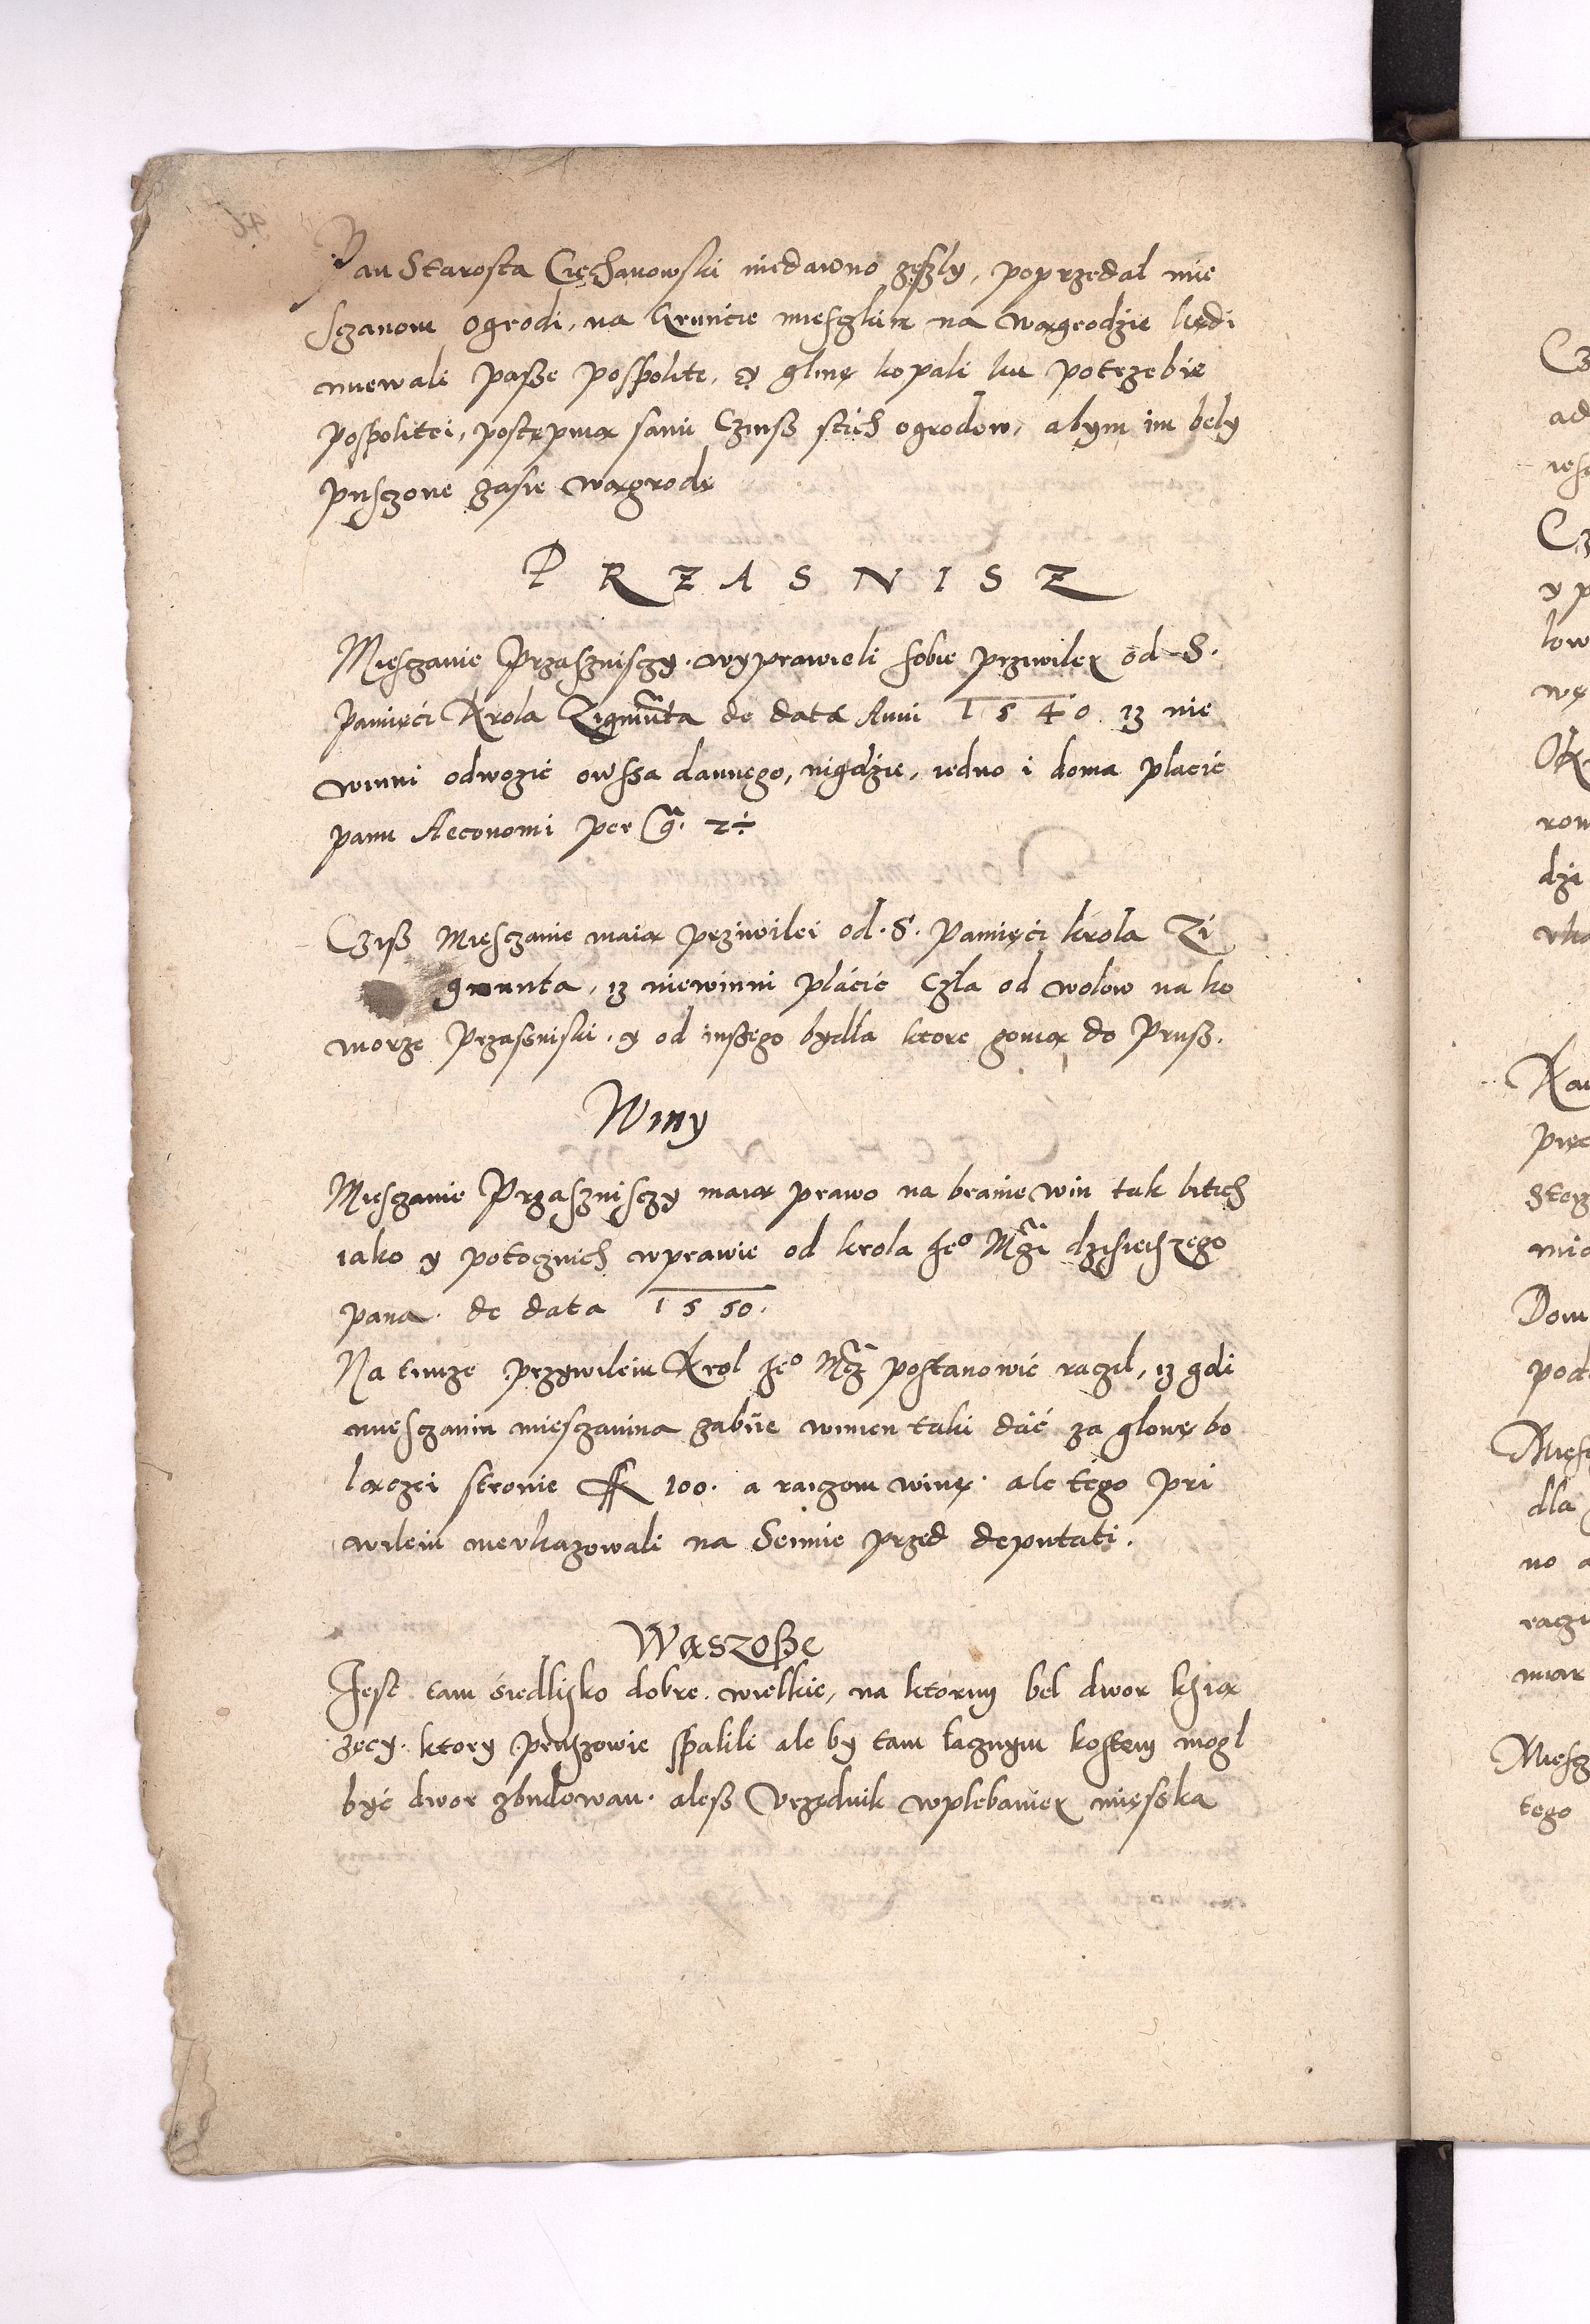 Pan Starosta Ciechanowski niedawno zeszly, poprzedal mie
sczanom ogrodi, na Gruncie mieszkim na wągrodzie kędi
miewali pasße pospolite, y glinę kopali ku potrzebie
pospolitei, postępuią sami Czinß stich ogrodow, abym im bely
pusczone zasie wągrodę
PRZASNISZ
Miesczanie Przaszniszczy wyprawieli sobie przwilei od S.
Pamięci Krola Zigmunta de data Anni 1540. iz nie
winni odwozic owssa dannego, nigdzie, iedno i doma placic
panu Aeconomi per g. 2÷
Cziß Miesczanie maią prziwilei od S. Pamięci krola Zi
gmunta, iz niewinni placic Czla od wolow na ko
morze Przasniski, y od inßego bydla ktore gonią do Pruß.
Winy
Miesczanie Przaszniszczy maią prawo na branie win tak bitich
iako y potocznich wprawie od krola Jeo Mczi dzisieiszego
pana de data 1550.
Na timze przywileiu Krol Jeo Mcz postanowic raczil, iz gdi
miesczanin miesczanina zabiie winien taki dac za glowę bo
lączei stronie 100. a raiczom winę. ale tego pri
wileiu nieukazowali na Seimie przed deputati.
Wąszoße
Jest tam siedlisko dobre wielkie, na ktorim bel dwor ksią
zęcy ktory pruszowie spalili ale by tam lacznym kostem mogl
byc dwor zbudowan. aleß Urzędnik wplebaniei mięsska